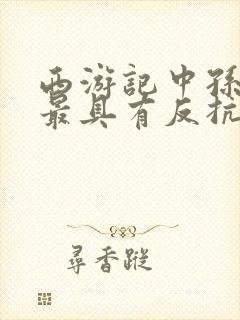 西游記中孫
最具有反抗
尋香蹤